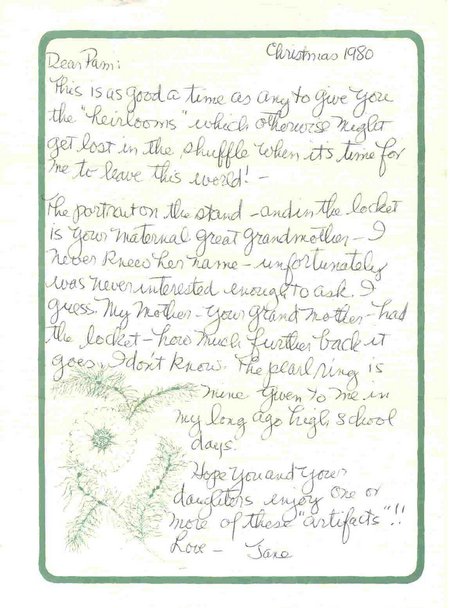 Christmas 1980
Dear Pam:
This is as good a time as any to give you
the "heirlooms" which otherwise might
get lost in the shuffle when it's time for
me to leave this world! -
The portrait on the stand - and in the locket
is your maternal great grandmother - I
never knew her name - unfortunately
was never interested enough to ask. I
guess. My Mother - your grandmother - had
the locket - how much further back it
goes, I don't know. The pearl ring is
mine given to me in
my long ago high school
days.
Hope you and your
daughters enjoy one or
more of these "artifacts"!!
Love - Jane